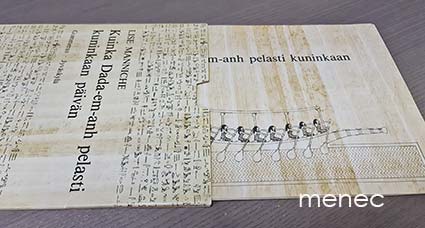 LISE MANNICHE
Kuinka Dada-em-anh pelasti
kuninkaan päivän
m-anh pelasti kuninkaan
menec